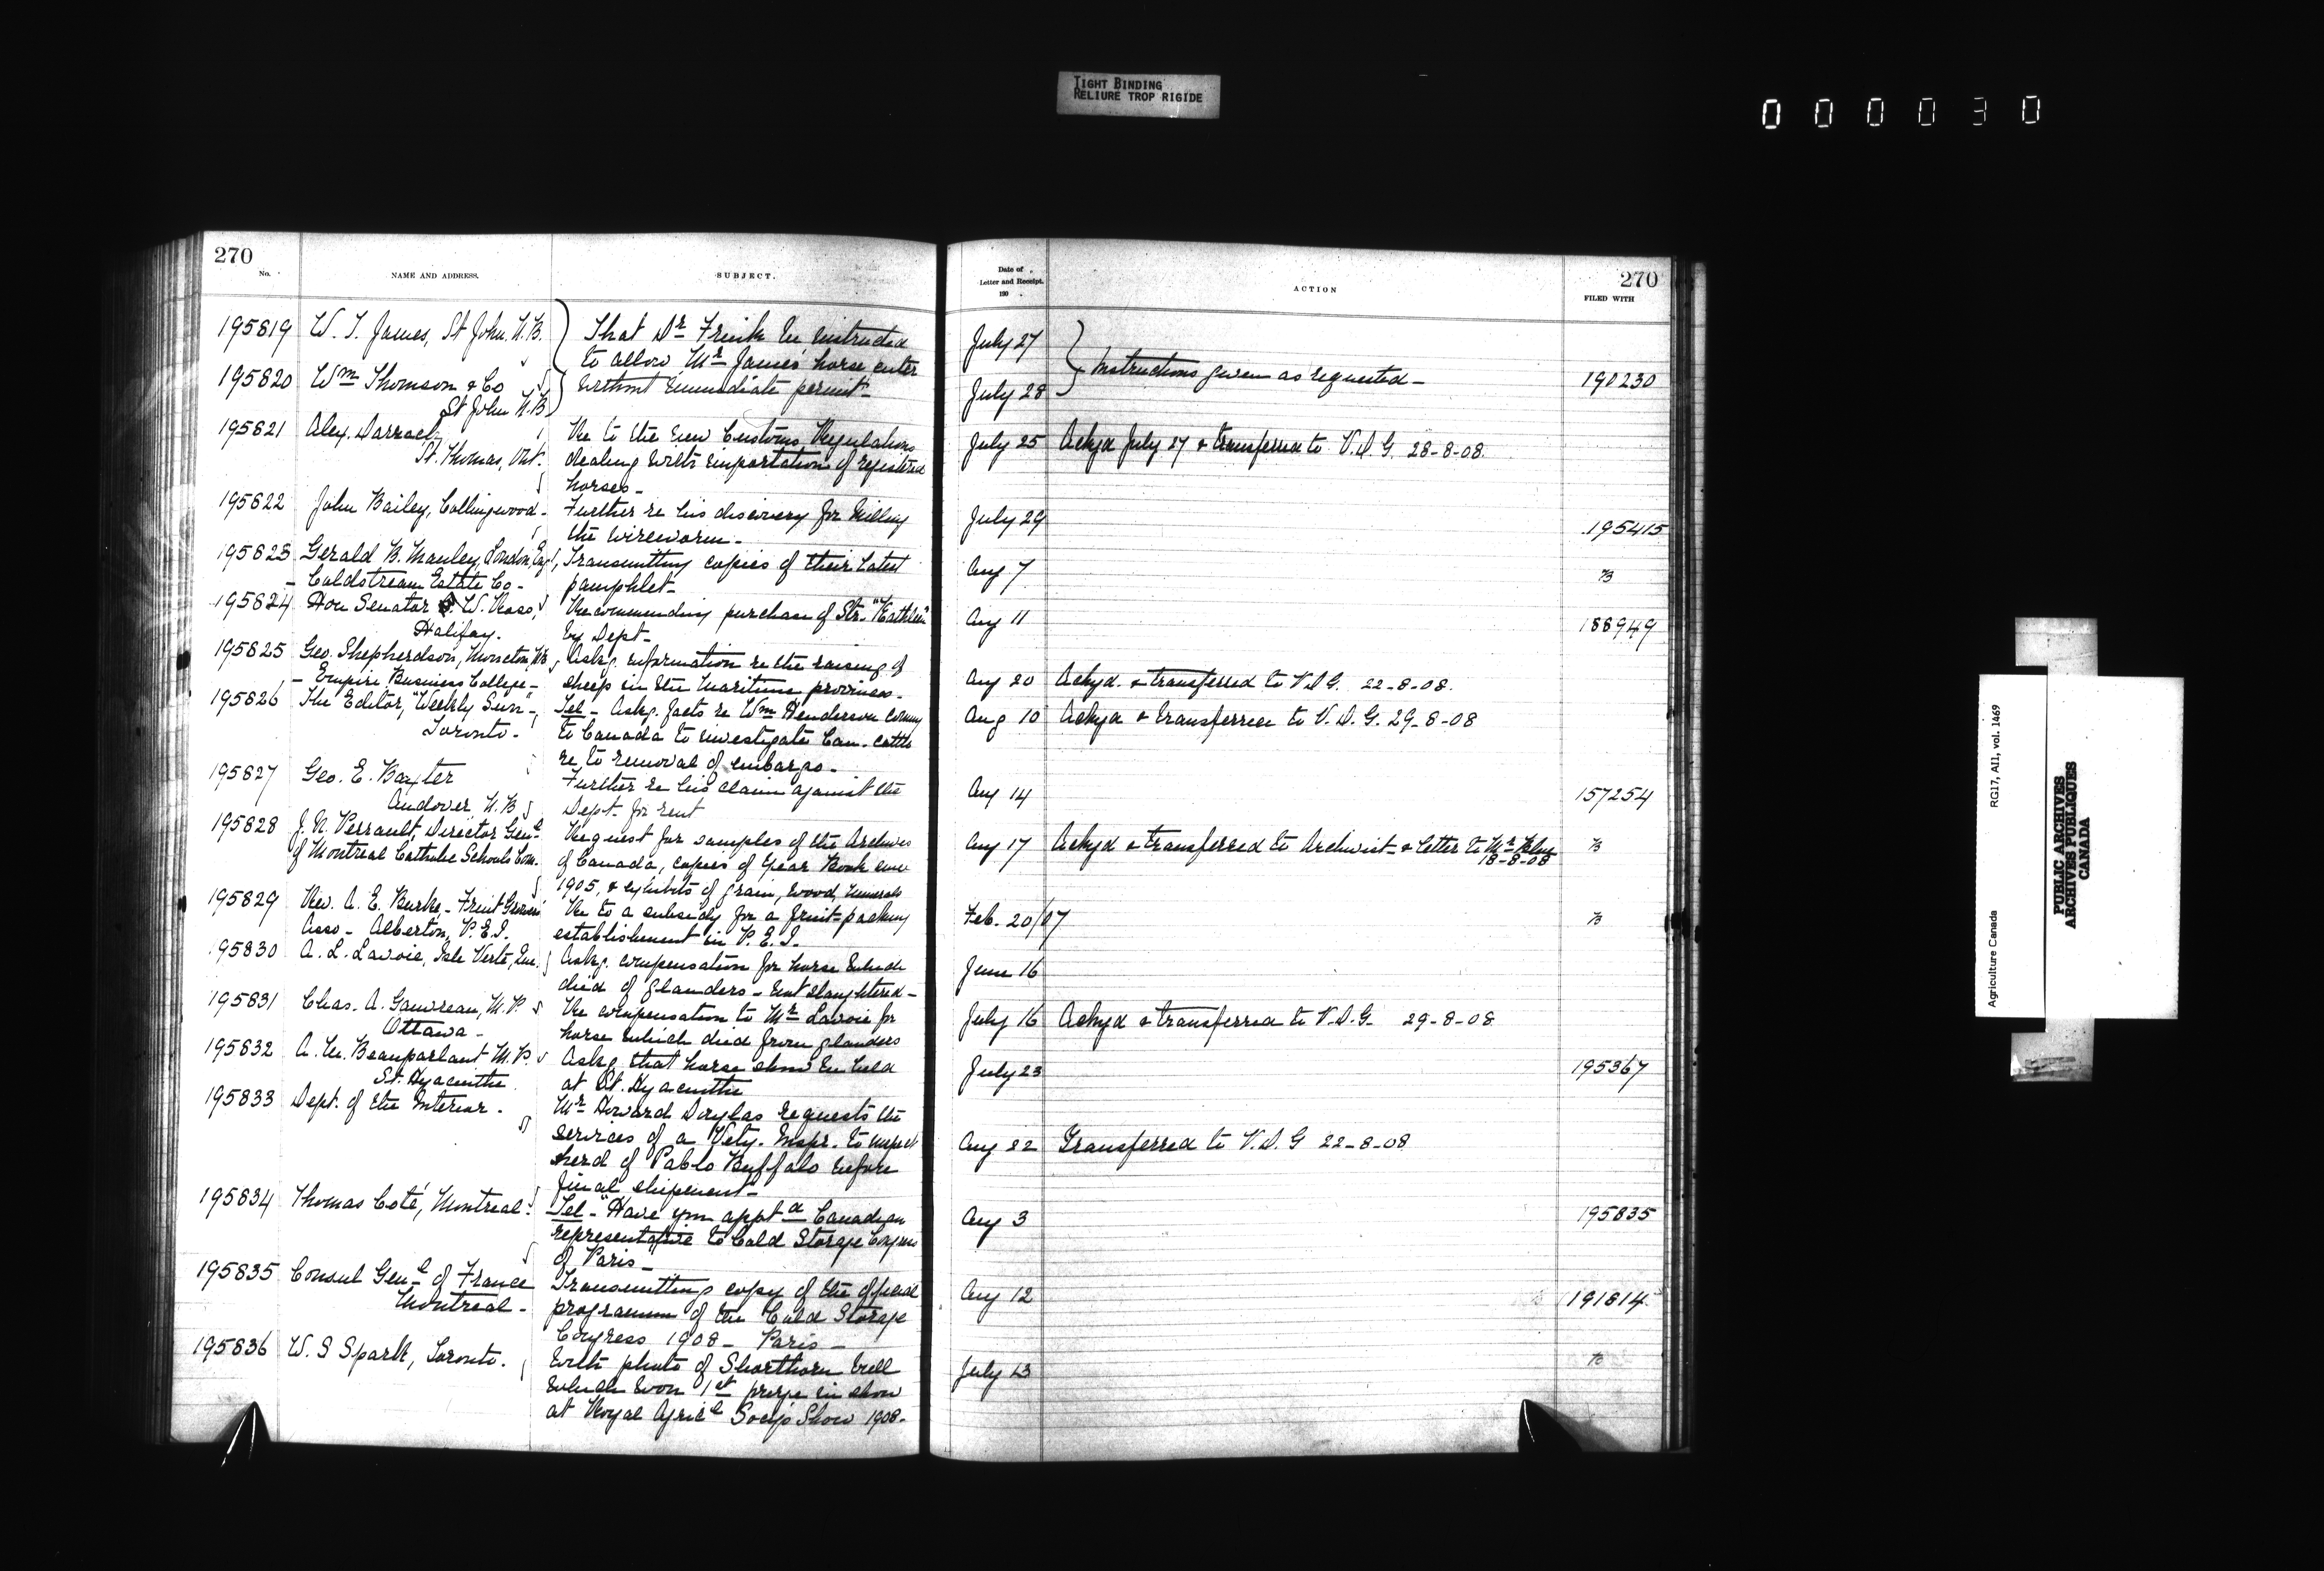 TIGHT BINDING
RELIURE TROP RIGIDE
000030
270
No.
NAME AND ADDRESS.
SUBJECT.
195819 W. T. James, St John. N.B. That Dr Frink be instructed
to allow Mr James' horse enter
195820 Wm Thomson & Co without immediate permit-
St John N.B.
195821 Alex. Darrach Re to the new Customs Regulations
St. Thomas, Ont. dealing with importation of registered
horses-
195822 John Bailey, Collingwood- Further re his discovery for killing
the wireworm-
195823 Gerald B. Manley, London, Eng, Transmitting copies of their latest
- Coldstream Estate Co- pamphlet-
195824 Hon Senator W. Ross, Recommending purchase of Str. "Kathleen"
Halifax. by Dept-
195825 Geo. Shepherdson, Moncton, NB Askg. information re the raising of
- Empire Business College- sheep in the Maritime provinces-
195826 The Editor, "Weekly Sun"- Tel- Askg. facts re Wm Henderson coming
Toronto- to Canada to investigate Can. cattle
re to removal of embargo-
195827 Geo. E. Baxter Further re his claim against the
Andover N.B. Dept. for rent
195828 J. N. Perrault, Director Genl Request for samples of the Archives
of Montreal Catholic Schools Com. of Canada, copies of Year Book since
1905, & exhibits of grain, wood, minerals
195829 Rev. A. E. Burke- Fruit Growers' Re to a subsidy for a fruit-packing
Asso- Alberton, P.E.I. establishment in P.E.I.
195830 A. L. Lavoie, Isle Verte, Que. Askg. compensation for horse which
died of glanders- not slaughtered-
195831 Chas. A. Gauvreau, M.P. Re compensation to Mr Lavoie for
Ottawa- horse which died from glanders
195832 A. M. Beauparlant M.P. Askg. that horse show be held
St. Hyacinthe at St. Hyacinthe
195833 Dept. of the Interior. Mr Howard Douglas requests the
services of a Vety. Inspr. to inspect
herd of Pablo Buffalo before
final shipment-
195834 Thomas Coté, Montreal. Tel- "Have you apptd Canadian
representative to Cold Storage Congress
of Paris-
195835 Consul Genl of France Transmitting copy of the official
Montreal- programme of the Cold Storage
Congress 1908- Paris-
195836 W. S Spark, Toronto. With photo of Shorthorn bull
which won 1st prize in show
at Royal Agricl Socy's Show 1908-
Date of
Letter and Receipt.
190
ACTION
270
FILED WITH
July 27
Instructions given as requested- 190230
July 28
July 25 Ackgd July 27 & transferred to V.D.G. 28-8-08.
July 29 195415
Aug 7
Aug 11 188949
Aug 20 Ackgd. & transferred to V.D.G. 22-8-08.
Aug 10 Ackgd & transferred to V.D.G. 29-8-08
Aug 14 157254
Aug 17 Ackgd & transferred to Archivist- & letter to Mr
18-8-08
Feb. 20/07
June 16
July 16 Ackgd & transferred to V.D.G. 29-8-08
July 23 195367
Aug 22 Transferred to V.D.G 22-8-08
Aug 3 195835
Aug 12 191814
July 13
Agriculture Canada RG17, AI1, vol. 1469
PUBLIC ARCHIVES
ARCHIVES PUBLIQUES
CANADA